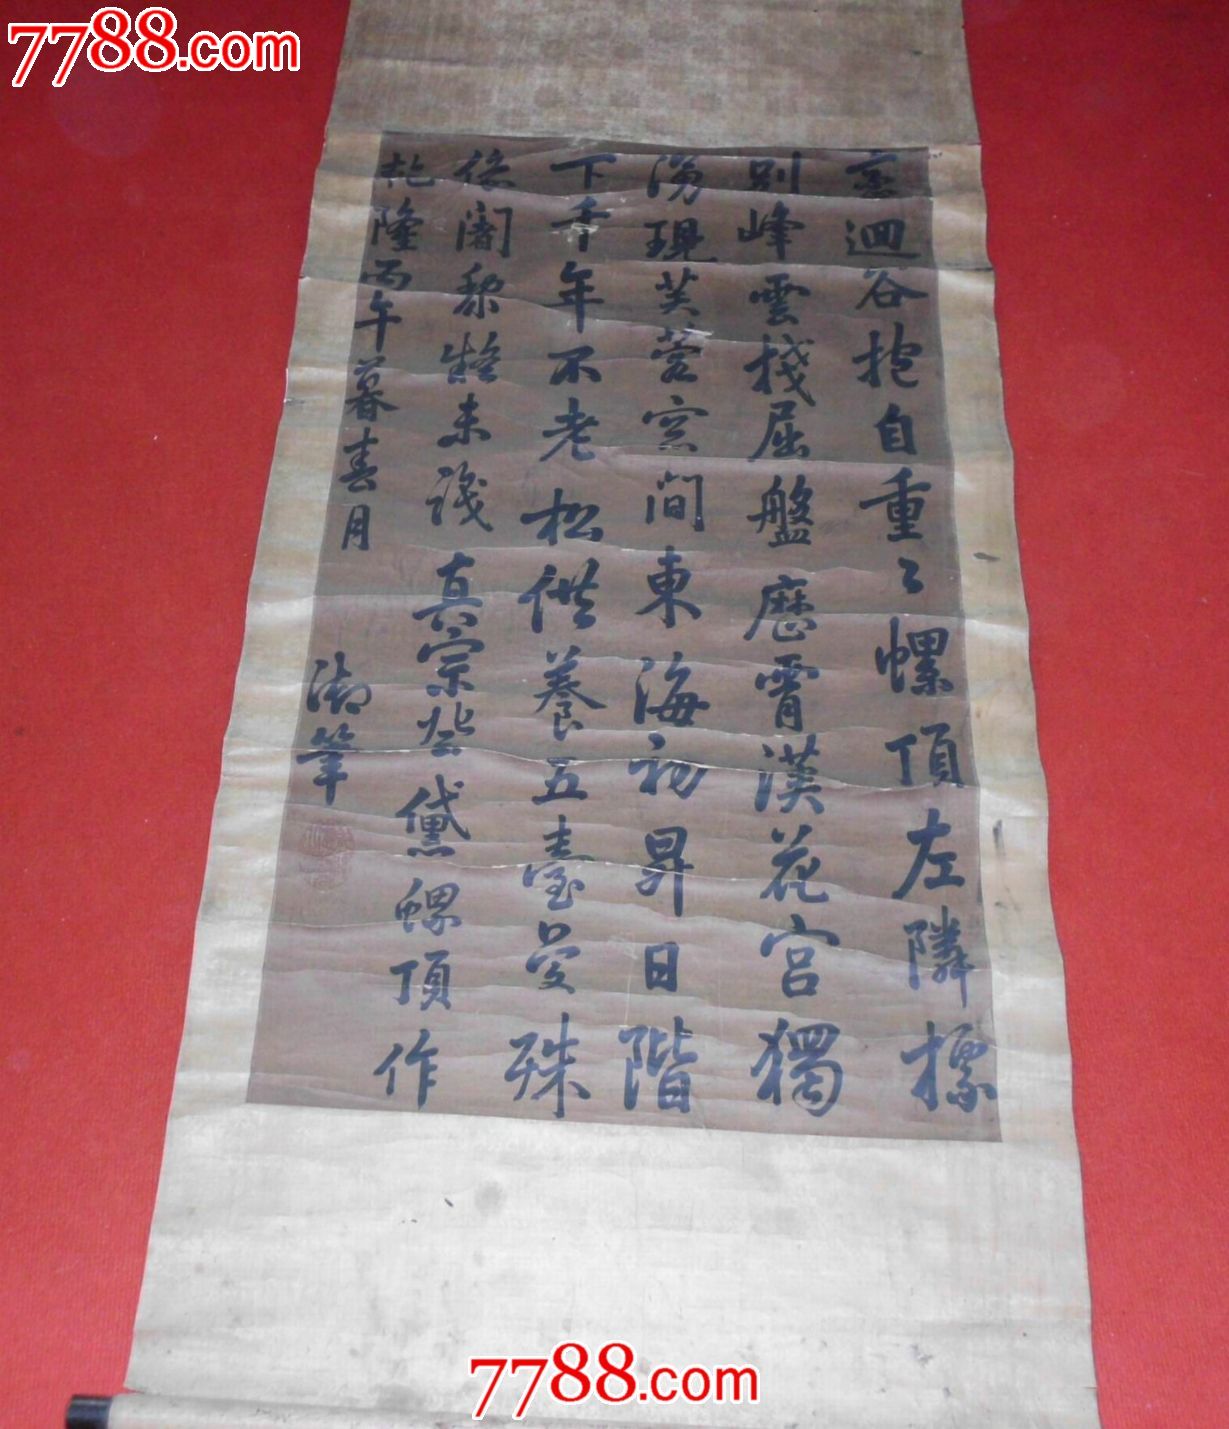 7788.com
迴谷抱自重〻螺頂左隣標
別峰雲棧屈盤歷霄漢花宮獨
湧現芙蓉窓間東海初昇日階
下千年不老松供養五臺曼殊
依闍黎疑未識真宗紫黛螺頂作
乾隆丙午暮春月
御筆
7788.com